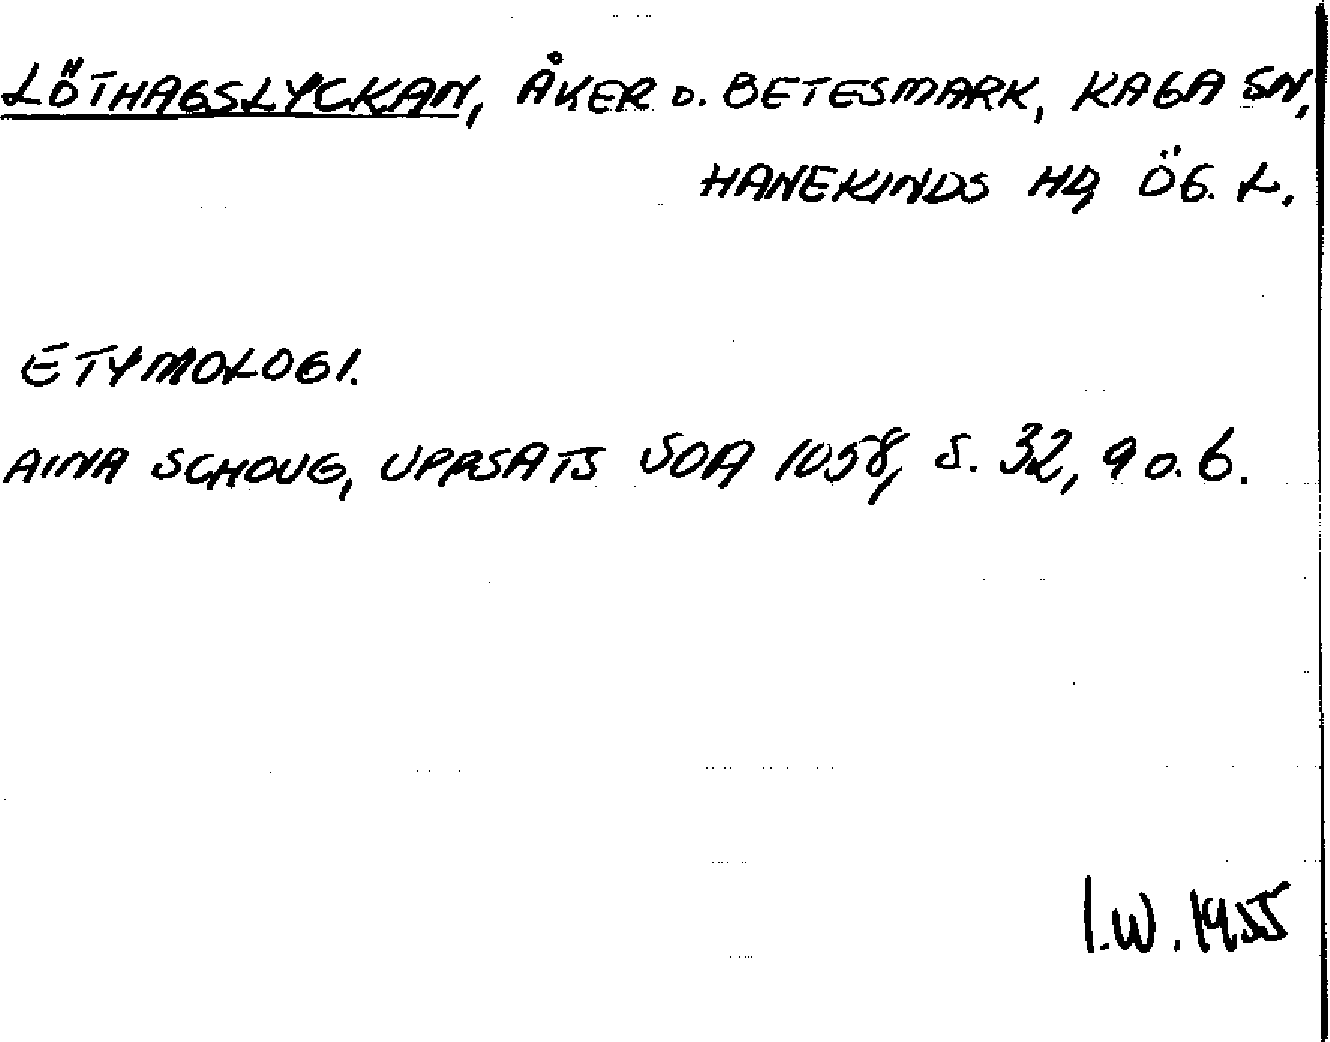 LÖTHAGSLYCKAN, ÅKER O. BETESMARK, KAGA SN,
HANEKINDS HD, ÖG. L.
ETYMOLOGI.
AINA SCHOUG, UPPSATS SOA 1058, S. 32, 9 O. 6.
I.W. 1955